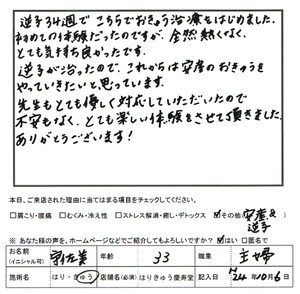 逆子34週でこちらでおきゅう治療をはじめました。
初めての体験だったのですが、全然熱くなく、
とても気持ち良かったです。
逆子が治ったので、これからは安産のおきゅうを
やっていきたいと思っています。
先生もとても優しく対応していただいたので
不安もなく、とても楽しい体験をさせて頂きました。
ありがとうございます!
本日、ご来店された理由に当てはまる項目をチェックしてください。
□肩こり・腰痛 □むくみ・冷え性 □ストレス解消・癒し・デトックス ☑その他(安産&逆子)
※あなた様の声を、ホームページなどでご紹介してもよろしいですか? ☑はい □匿名で
お名前(イニシャル可) 年齢 33 職業 主婦
施術名 はり・きゅう 店舗名(必須) はりきゅう慶寿堂 記入日 H24年10月6日